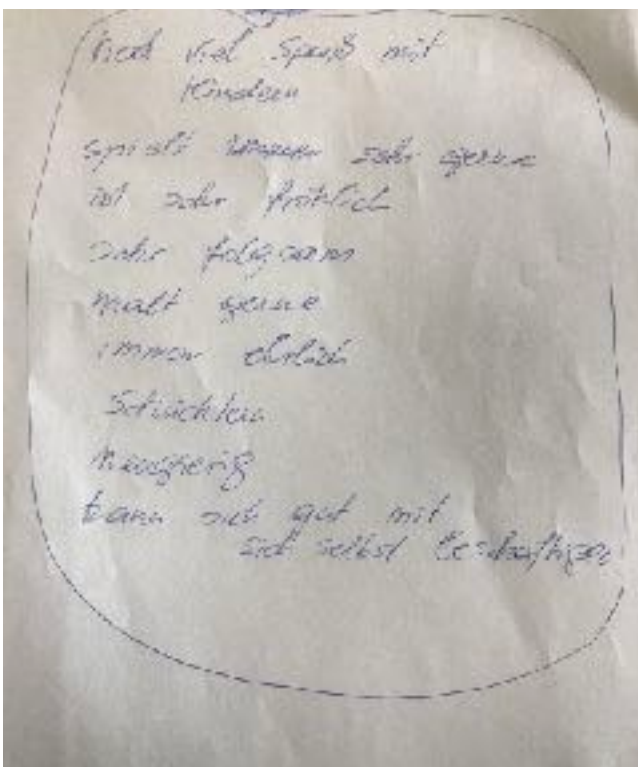 hat viel Spaß mit
Kindern
spielt sehr gerne
ist sehr fröhlich
sehr folgsam
malt gerne
immer ehrlich
Schüchtern
neugierig
kann sich gut mit
sich selbst beschäftigen